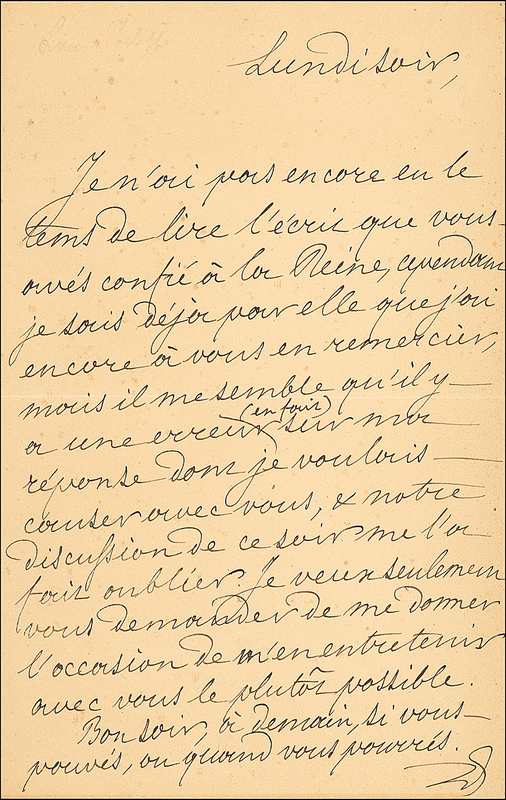 Lundi soir,
Je n'ai pas encore eu le
tems de lire l'écrit que vous
avés confié à la Reine, cependant
je sais déja par elle que j'ai
encore à vous en remercier,
mais il me semble qu'il y
a une erreur (en fait) sur ma
réponse dont je voulais
causer avec vous, & notre
discussion de ce soir me l'a
fait oublier. Je veux seulement
vous demander de me donner
l'occasion de m'en entretenir
avec vous le plutôt possible.
Bon soir, à demain, si vous
pouvés, ou quand vous pourrés.